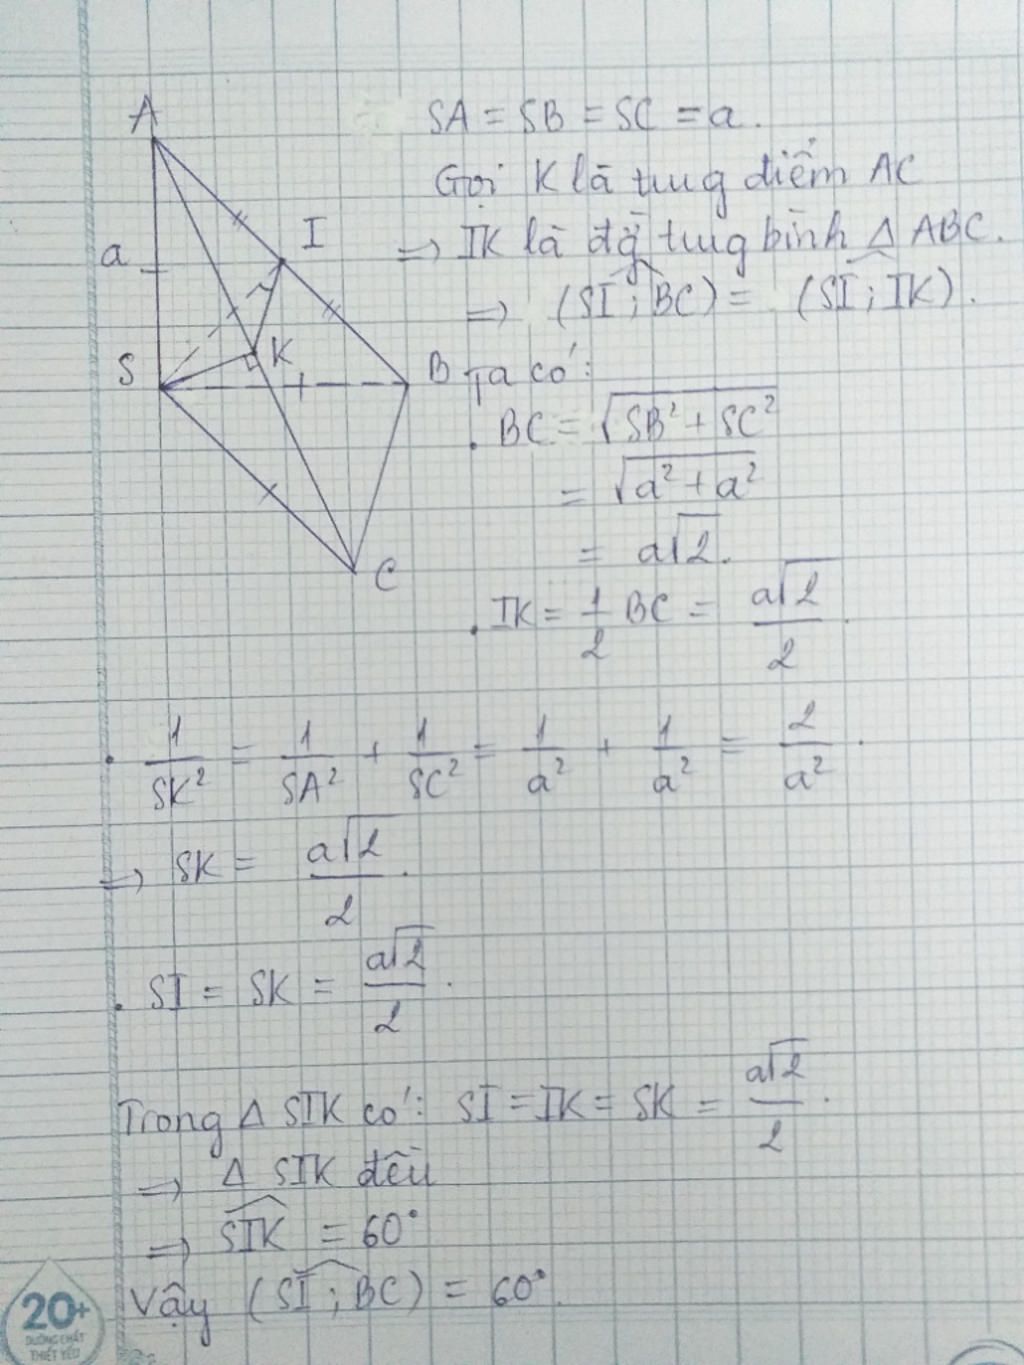 A
SA = SB = SC = a.
Gọi K là tung điểm AC
I
a
=> IK là đg tung bình Δ ABC.
=> (SI ; BC) = (SI ; IK).
S
K
B
Ta có:
. BC = √(SB² + SC²)
= √(a² + a²)
= a√2.
C
. IK = 1/2 BC = a√2/2.
. 1/SK² = 1/SA² + 1/SC² = 1/a² + 1/a² = 2/a².
=> SK = a√2/2.
. SI = SK = a√2/2.
Trong Δ SIK có: SI = IK = SK = a√2/2.
=> Δ SIK đều
=> SIK = 60°
Vậy (SI ; BC) = 60°.
20+
DƯỠNG CHẤT
THIẾT YẾU